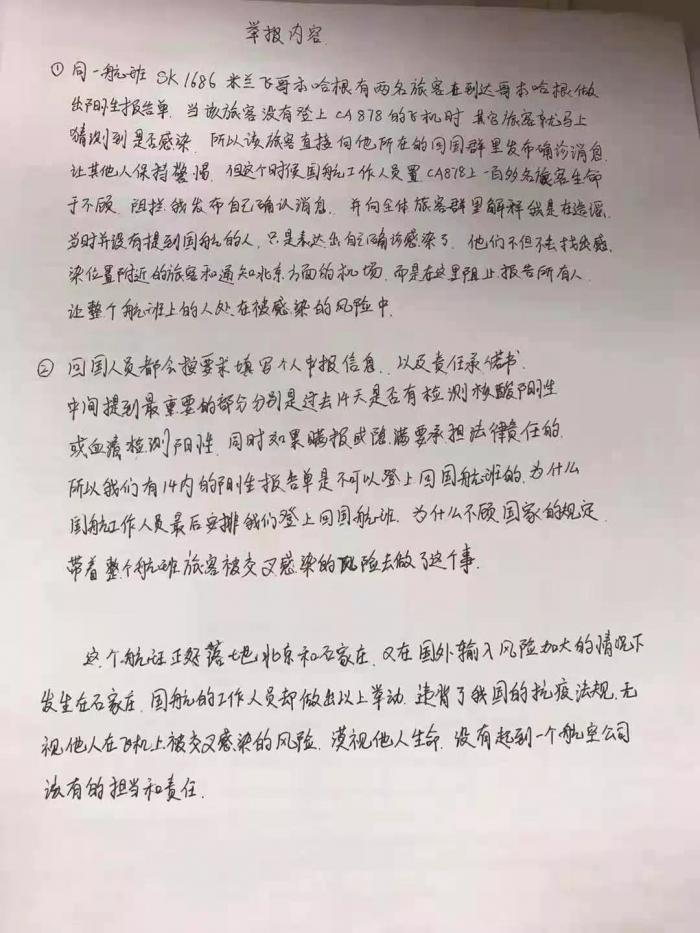 举报内容
① 同一航班 SK1686 米兰飞哥本哈根有两名旅客在到达哥本哈根做
出阳性报告单. 当该旅客没有登上CA878的飞机时 其它旅客就马上
猜测到是否感染. 所以该旅客直接向他所在的回国群里发布确诊消息.
让其他人保持警惕. 但这个时候国航工作人员置CA878上一百多名旅客生命
于不顾. 阻拦我发布自己确认消息. 并向全体旅客群里解释我是在造谣.
当时并没有提到国航的人, 只是表达出自己确诊感染了. 他们不但不去找出感
染位置附近的旅客和通知北京方面的机场. 而是在这里阻止报告所有人.
让整个航班上的人处在被感染的风险中.
② 回国人员都会按要求填写个人申报信息. 以及责任承诺书.
中间提到最重要的部分分别是过去14天是否有检测核酸阳性
或血清检测阳性. 同时如果瞒报或隐瞒要承担法律责任的.
所以我们有14内的阳性报告单是不可以登上回国航班的. 为什么
国航工作人员最后安排我们登上回国航班. 为什么不顾国家的规定.
带着整个航班旅客被交叉感染的风险去做了这个事.
这个航班正好落地北京和石家庄. 又在国外输入风险加大的情况下
发生在石家庄. 国航的工作人员却做出以上举动. 违背了我国的抗疫法规. 无
视他人在飞机上被交叉感染的风险. 漠视他人生命. 没有起到一个航空公司
该有的担当和责任.